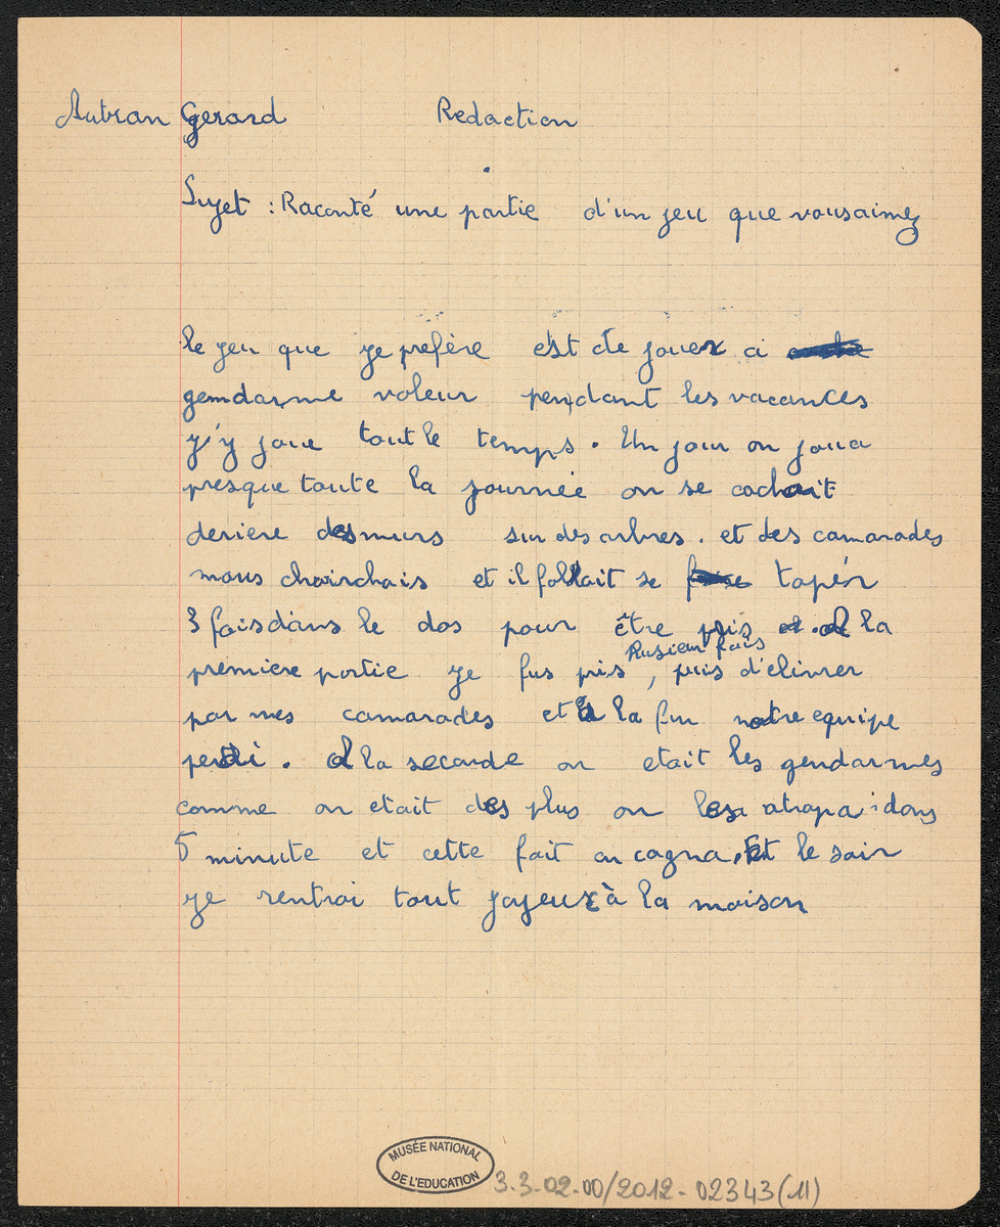 Autran Gerard Redaction
Sujet : Raconté une partie d'un jeu que vous aimez
le jeu que je prefère c'est de jouer a
gemdarme voleur pendant les vacances
j'y joue tout le temps. Un jour on joua
presque toute la journée on se cachait
deriere des murs sur des arbres. et des camarades
nous choirchais et il fallait se tapér
3 fois dans le dos pour être pris A la
Plusieur fois
premiere partie je fus pris, puis d'élivrer
par mes camarades et à la fin notre equipe
perdi. A la seconde on etait les gendarmes
comme on etait des plus on les atrapa dans
5 minute et cette fait on cagna. Et le soir
je rentrai tout joyeux à la maison
MUSÉE NATIONAL
DE L'EDUCATION
3.3.02.00/2012-02343(11)